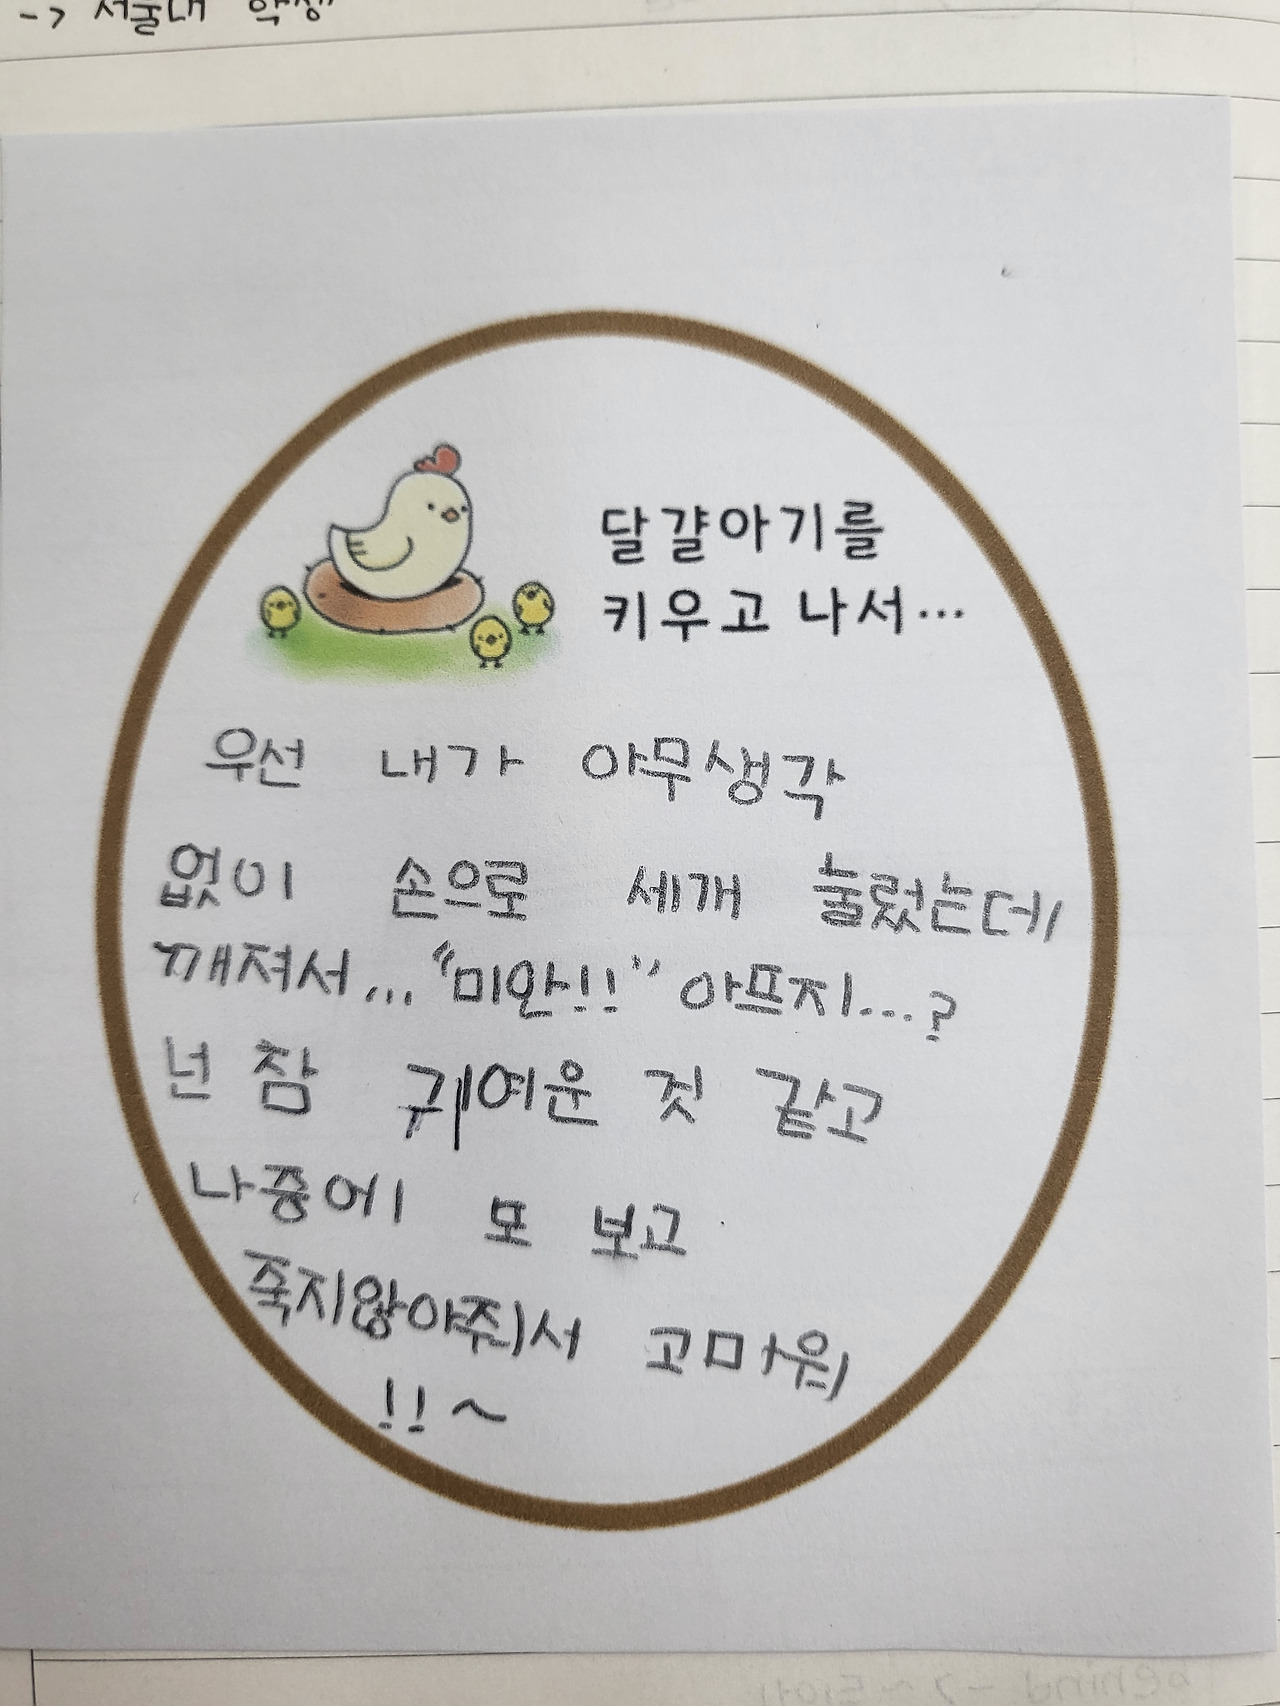 달걀아기를
키우고 나서...
우선 내가 아무생각
없이 손으로 세개 눌렀는데
깨져서... "미안!!" 아프지...?
넌 참 귀여운 것 같고
나중에 또 보고
죽지않아줘서 고마워
!! ~